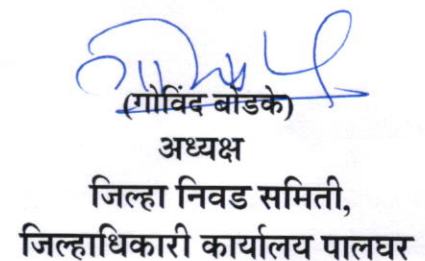 (गोविंद बोडके)
अध्यक्ष
जिल्हा निवड समिती,
जिल्हाधिकारी कार्यालय पालघर